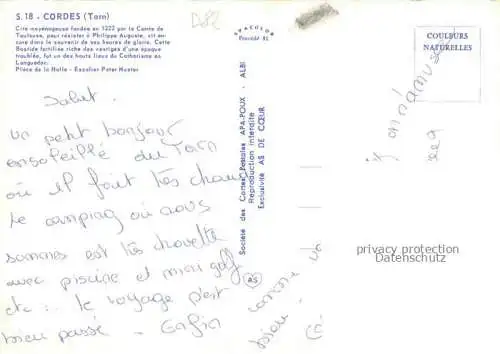 S. 18 - CORDES (Tarn)
Cité moyenâgeuse fondée en 1222 par le Comte de
Toulouse, pour résister à Philippe Auguste, vit en-
core dans le souvenir de ses heures de gloire. Cette
Bastide fortifiée riche des vestiges d'une époque
troublée, fut un des hauts lieux du Catharisme en
Languedoc.
Place de la Halle - Escalier Pater Noster
D82
APACOLOR
Procédé 82
COULEURS
NATURELLES
Société des Cartes Postales APA-POUX - ALBI
Reproduction interdite
Exclusivité AS DE CŒUR
AS
Salut.
Un petit bonjour
ensoleillé du Tarn
où il fait très chaud
Le camping où nous
sommes est très chouette
avec piscine et mini golf
etc... le voyage s'est
bien passé - Enfin
privacy protection
Datenschutz